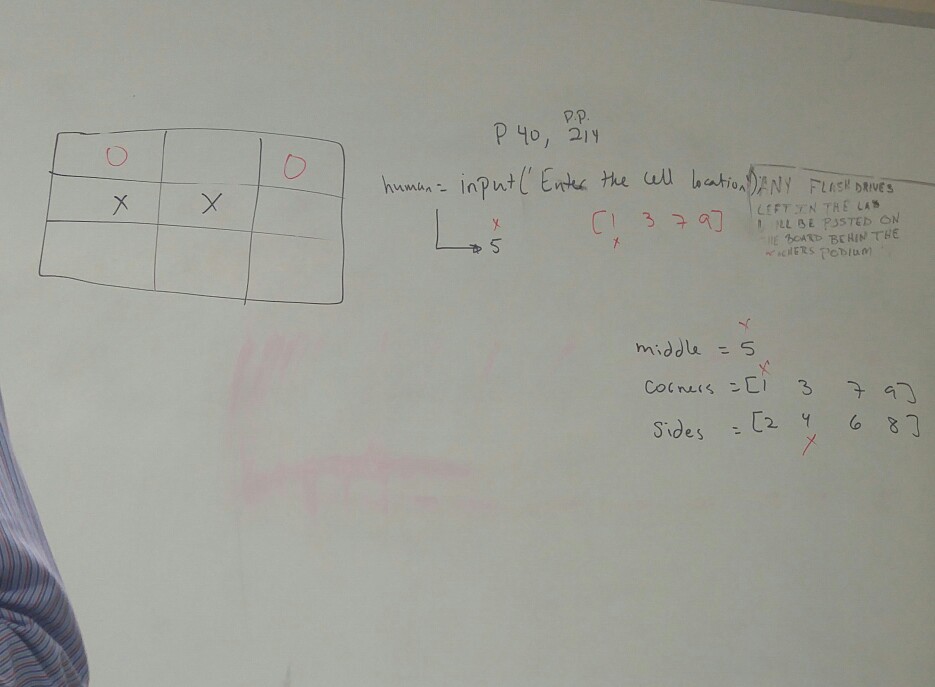 P.P.
P 40, 214
human = input(' Enter the cell location')
x
5
[1 3 7 9]
x
ANY FLASH DRIVES
LEFT IN THE LAB
ILL BE POSTED ON
HE BOARD BEHIN THE
PODIUM
O O
X X
x
middle = 5
x
Corners = [1 3 7 9]
Sides = [2 4 6 8]
x